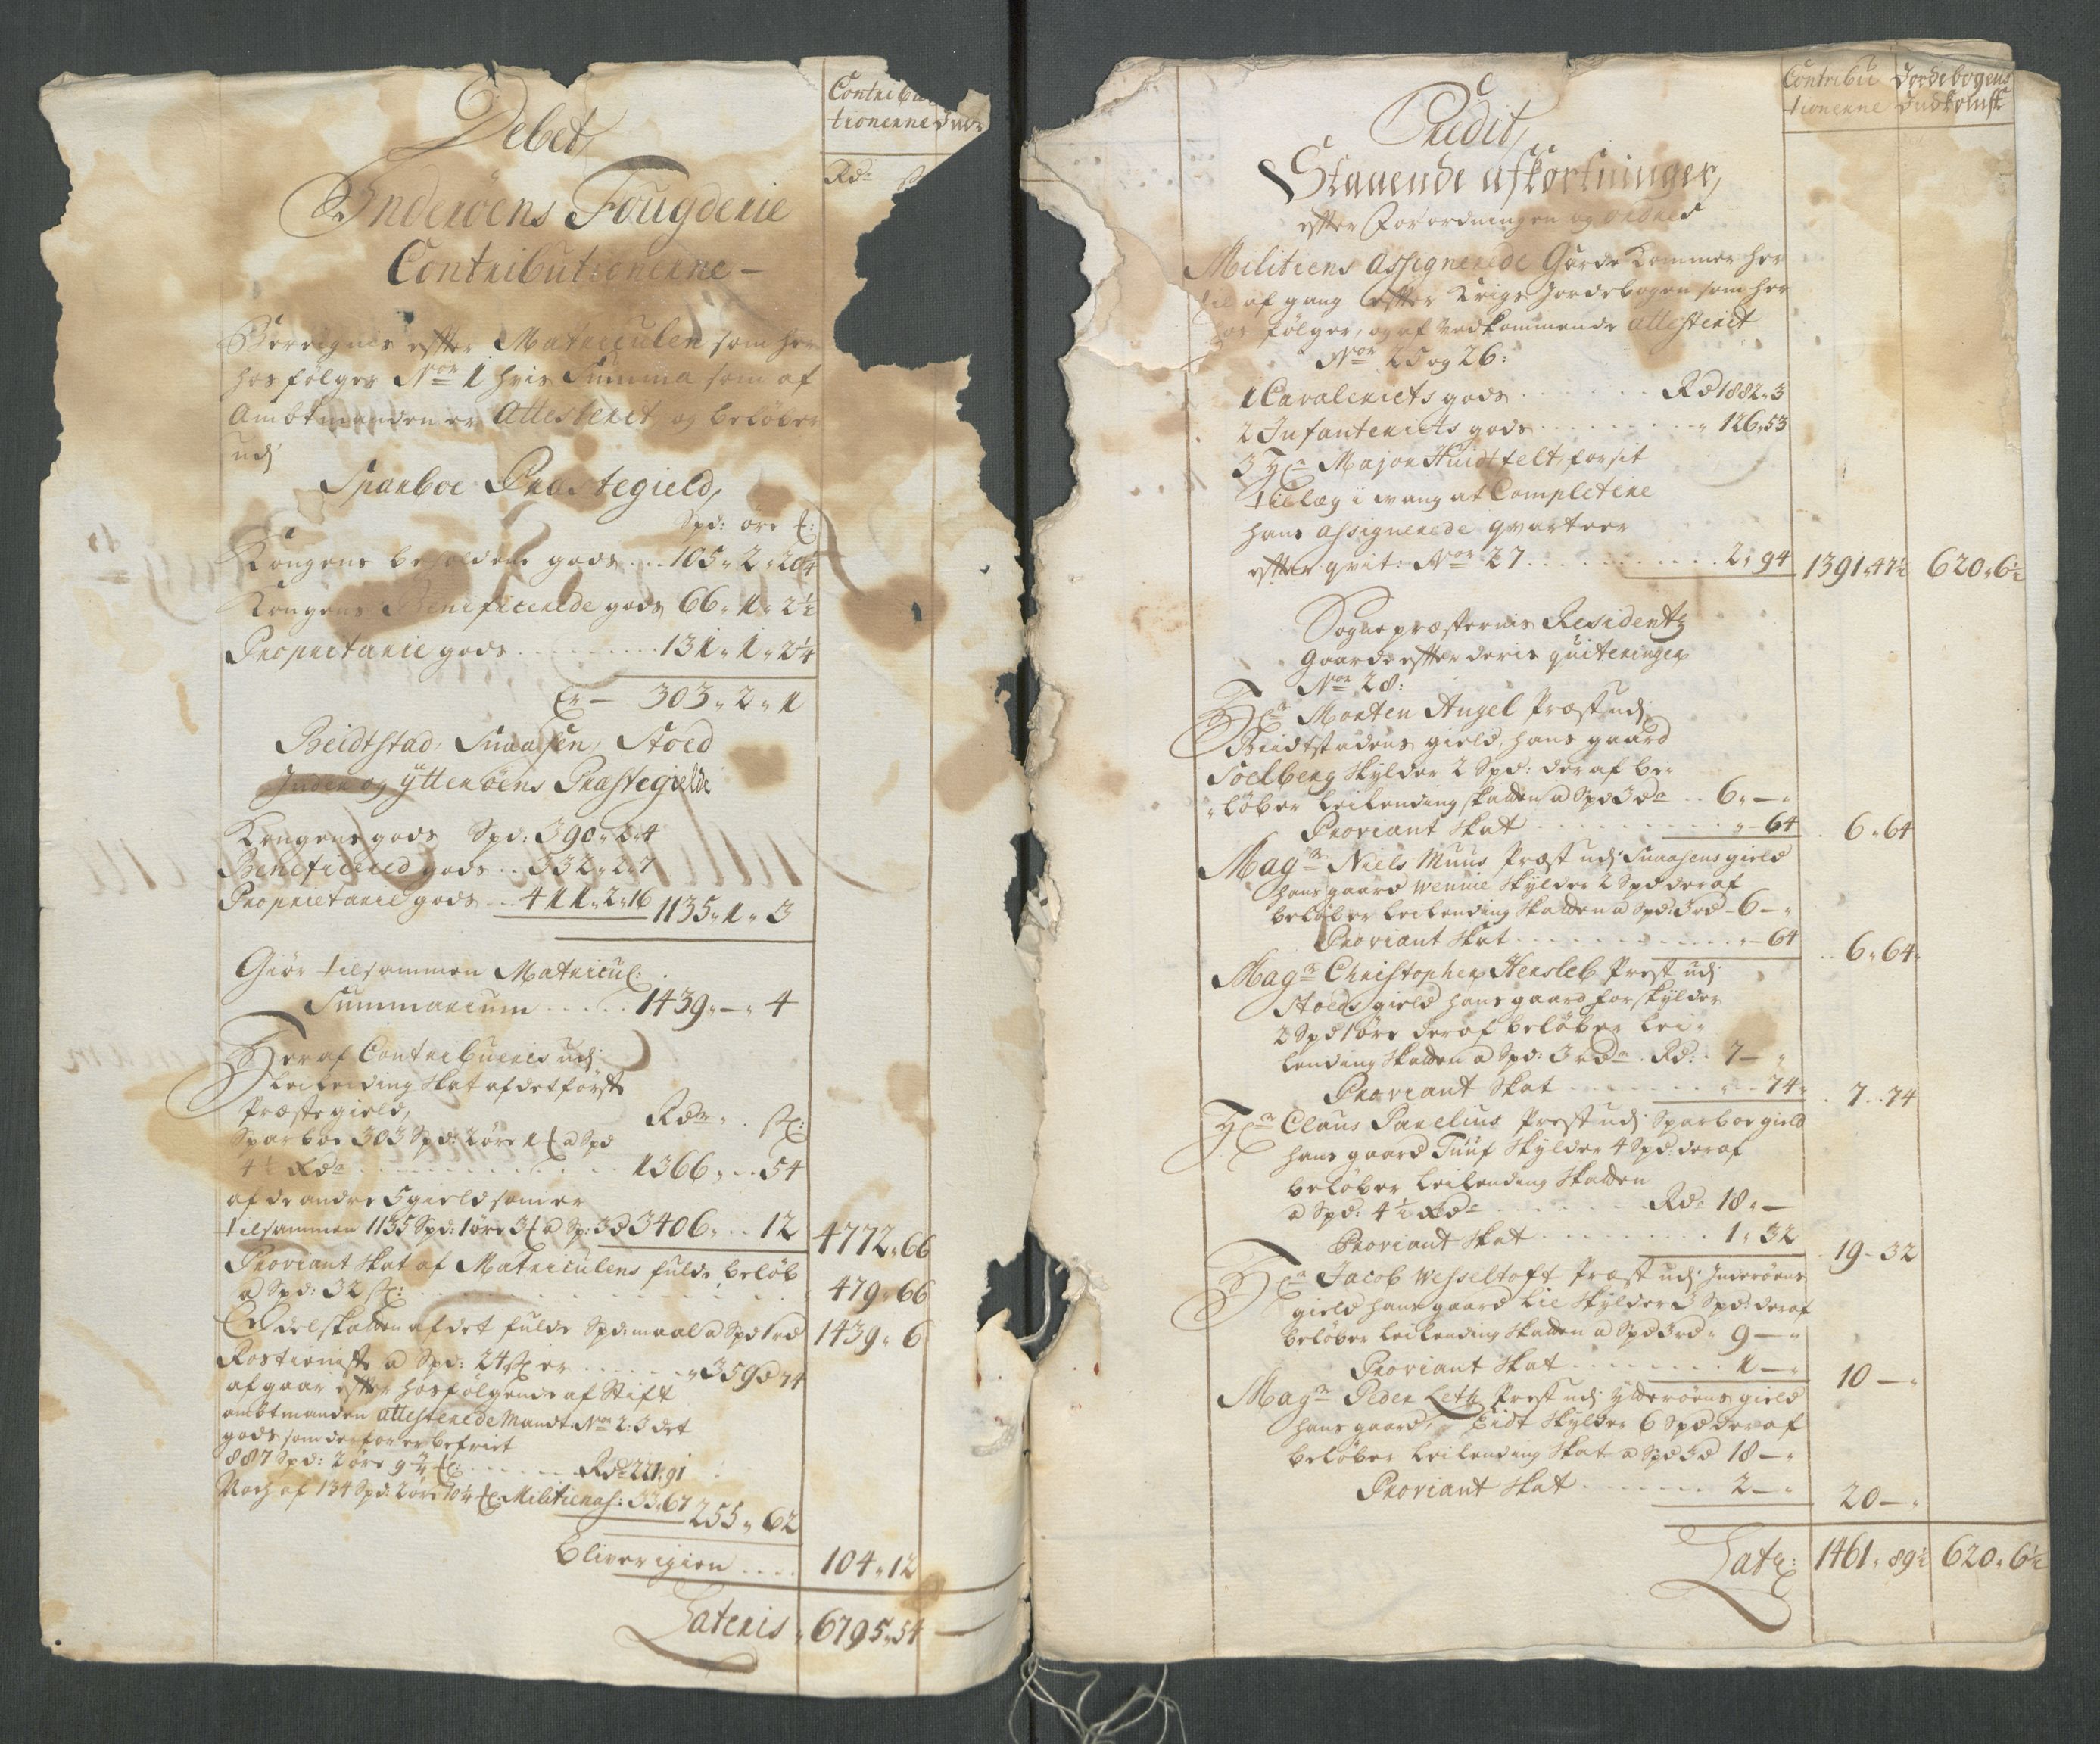 Contribu
tionerne Ind
Rdr
Debet,
Inderöens Fougderie
Contributionerne -
Bereignis effter Matriculen som her
hos fölger Nor 1 hvis Summa som af
Ambtmanden er Attesterit og beløber
udj
Sparboe Præstegield,
Spd: öre
Kongens beholdene gods .. 105 „ 2 „ 20¼
Kongens Beneficerede gods 66 „ 1 „ 2½
Proprietarie gods ..... 131 „ 1 „ 2¼
Er - 303 „ 2 „ 1
Beidtstad, Snaasen, Stoed
Inder og ÿtteröens Præstegielde
Kongens gods Spd: 390 „ 2 „ 4
Beneficered gods .. 332 „ 2 „ 7
Proprietarie gods .. 411 „ 2 „ 16 1135 „ 1 „ 3
Giör tilsammen Matricul:
Summarium ..... 1439 „ - „ 4
Heraf Contribueris udj
Leilending Skat af det förste
Præstegield,
Rdr „ . s:
Sparboe 303 Spd: 2 öre 1 a Spd
4½ Rdr ..... 1366 „ .. 54
af de andre 5 gield som er
tilsammen 1135 Spd: 1 öre 3 a Sp: 3d 3406 „ .. 12 4772 „ 66
Proviant Skat af Matriculens fulde beløb
a Spd: 32 s: ..... 479 „ 66
Odelskatten af det fulde Spd:maal a Spd 1 rd 1439 „ 6
Rostieniste a Spd: 24 s er ..... „ 359 d 74
afgaar effter hosfölgende af Stift
ambtmanden attesterede Mandt: Nor 2: 3 det
gods som derfor er befriet
887 Spd: 2 öre 9¾ ..... Rdr 221 „ 91
Noch af 134 Spd: 2 öre 10½ Militien as: 33 „ 67
255 „ 62
bliver igien .... 104 „ 12
Lateris „ 6795 „ 54 -
Contribu
tionerne
Jordebogens
Indkomst
Credit,
Staaende afkortninger,
effter Forordningen og ordres
Militiens Assignerede Garde kommer her
til afgang effter Krigs Jordebogen som her
hos fölger, og af vedkommende attesterit
Nor 25 og 26:
1 Cavaleriets gods ..... Rd 1882 „ 3
2 Infanteriets gods ..... „ 126 „ 53
3 Hr Major Huidtfelt for sit
tillæg i mang at Completere
hans assignerede qvarteer
effter qvit: Nor 27 ..... 2 „ 94 1391 „ 47½ 620 „ 6½
Sogne præsternis Residentz
Gaarde effter deris quiteringer
Nor 28:
Hr Morten Angel Præst udj
Beidtstadens gield, hans gaard
Soelberg Skÿlder 2 Spd: deraf be-
„ löber Leilending skatten a Spd 3 dr .. 6 „ - „
Proviant Skat ..... „ - 64 6 „ 64
Magr Niels Muus Præst udj Snaasens gield
hans gaard Wennie Skÿlder 2 Spd deraf
beløber Leilending Skatten a Spd: 3 rd - 6 - „
Proviant Skat ..... „ - 64 6 „ 64 „
Magr Christopher Hersleb Prest udj
Stoeds gield hans gaard for skÿlder
2 Spd 1 öre deraf beløber Lei-
lending Skatten a Spd: 3 rdr . Rd: . 7 - „
Proviant Skat ..... „ .. 74 „ 7 .. 74
Hr Claus Parelius Prest udj Sparboe gield
hans gaard Tuuf Skÿlder 4 Spd: deraf
beløber Leilending Skatten
a Spd: 4½ Rdr ..... Rd: 18 „ -
Proviant Skat ..... 1 „ 32 19 - 32
Hr Jacob Wesseltoft Præst udj Inderöens
gield hans gaard Lie Skÿlder 3 Spd: deraf
beløber Leilending Skatten a Spd 3 rd „ 9 - „
Proviant Skat ..... 1 - „ 10 - „
Magr Peder Leth Prest udj Ytterøens gield
hans gaard, Eidt Skÿlder 6 Spd deraf
beløber Leilending Skat a Spd 3 d 18 - „
Proviant Skat ..... 2 - „ 20 - „
Latr: 1461 „ 89½ 620 „ 6½